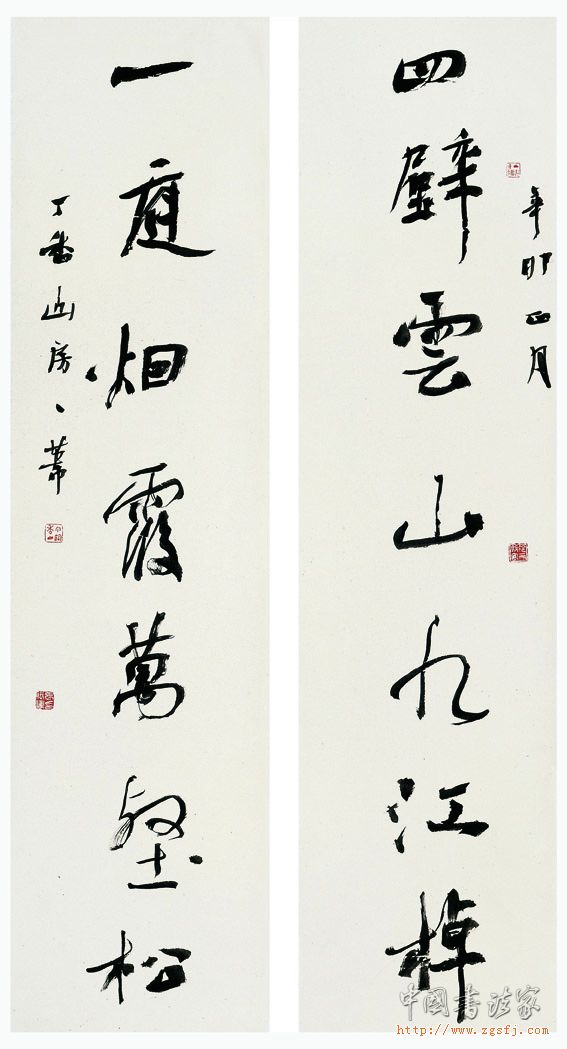 辛卯正月
四壁雲山九江棹
一庭烟霞萬壑松
丁香山房
中國书法家
http://www.zgsfj.com